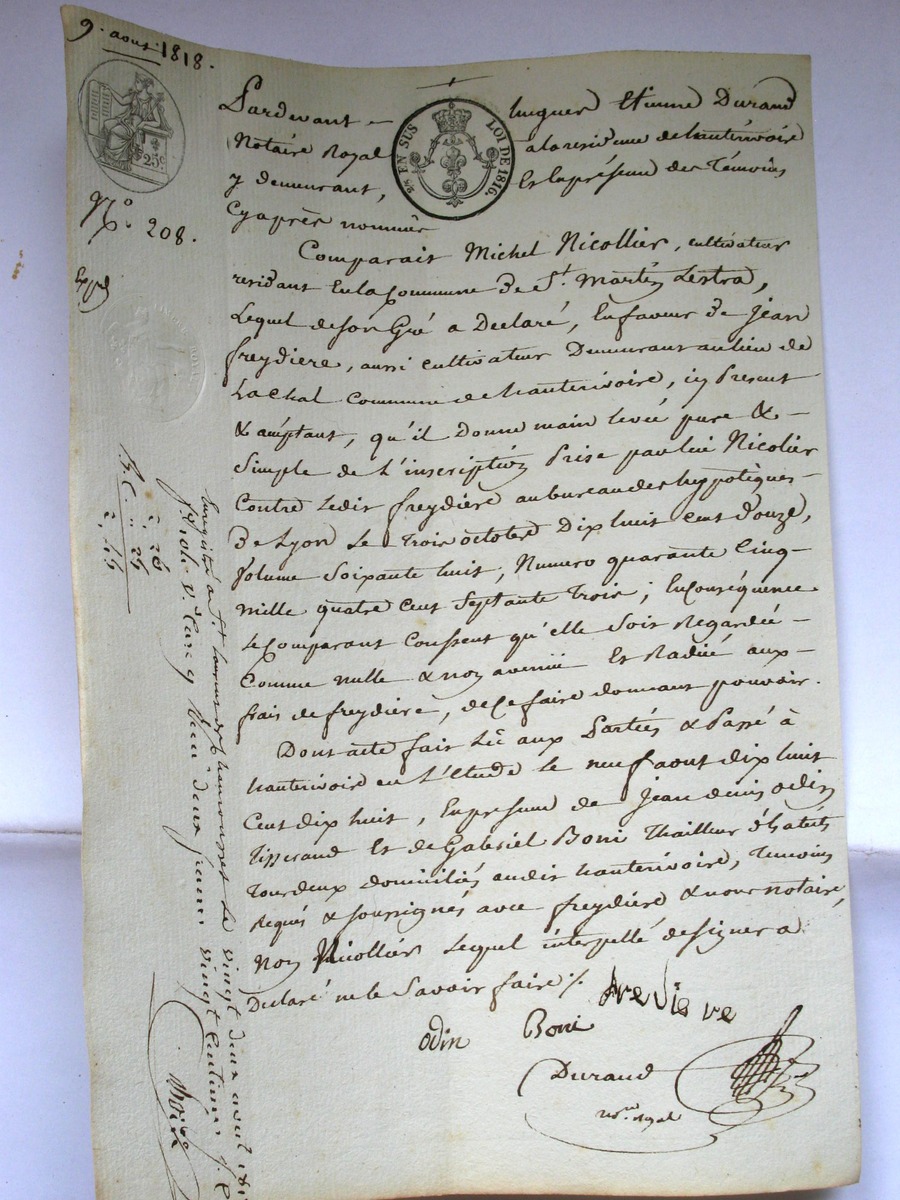 9. aoust 1818.
25c
EN SUS LOI DE 1816.
N.° 208.
Expé
Pardevant hugues Etienne Durand
Notaire Royal a la residence de hauterivoire
y demeurant, Et la présence des Témoins
Cy après nommés
Comparait Michel Nicollier, cultivateur
residant En la Commune de St. Martin Lestra,
Lequel de son Gré a Déclaré, En faveur de Jean
freydiere, aussi cultivateur Demeurant au lieu de
La chal Commune de hauterivoire, icy Present
& acéptant, qu'il donne main levée pure &
Simple de L'inscription Prise par lui Nicolier
Contre Ledit freydière au bureau des hyppotèques
de Lyon Le Trois octobre Dix huit cent Douze,
Volume Soixante huit, Numero quarante Cinq
mille quatre Cent Septante Trois; En Conséquence
le Comparant Consent qu'elle Soit Regardée
Comme nulle & non avenüe Et Radiée aux
frais de freydière, de Ce faire donnant pouvoir.
Dont acte fait Lü aux Parties & Passé à
hauterivoire en L'Etude le neuf aout dix huit
Cent dix huit, En présence de Jean denis odin
Tisserand Et de Gabriel Boni Thailleur d'habits
Tous deux domiciliés audit hauterivoire, Temoins
Requis & soussignés avec freydière & nous notaire,
Non Nicollier Lequel intérpellé de signer a
Declaré ne le Savoir faire /.
odin Boni
Durand
Not.re Royal
Enregistré a St Laurent de chamousset le vingt deux aout
f.° V.° Case 9 Reçu deux francs vingt Centimes